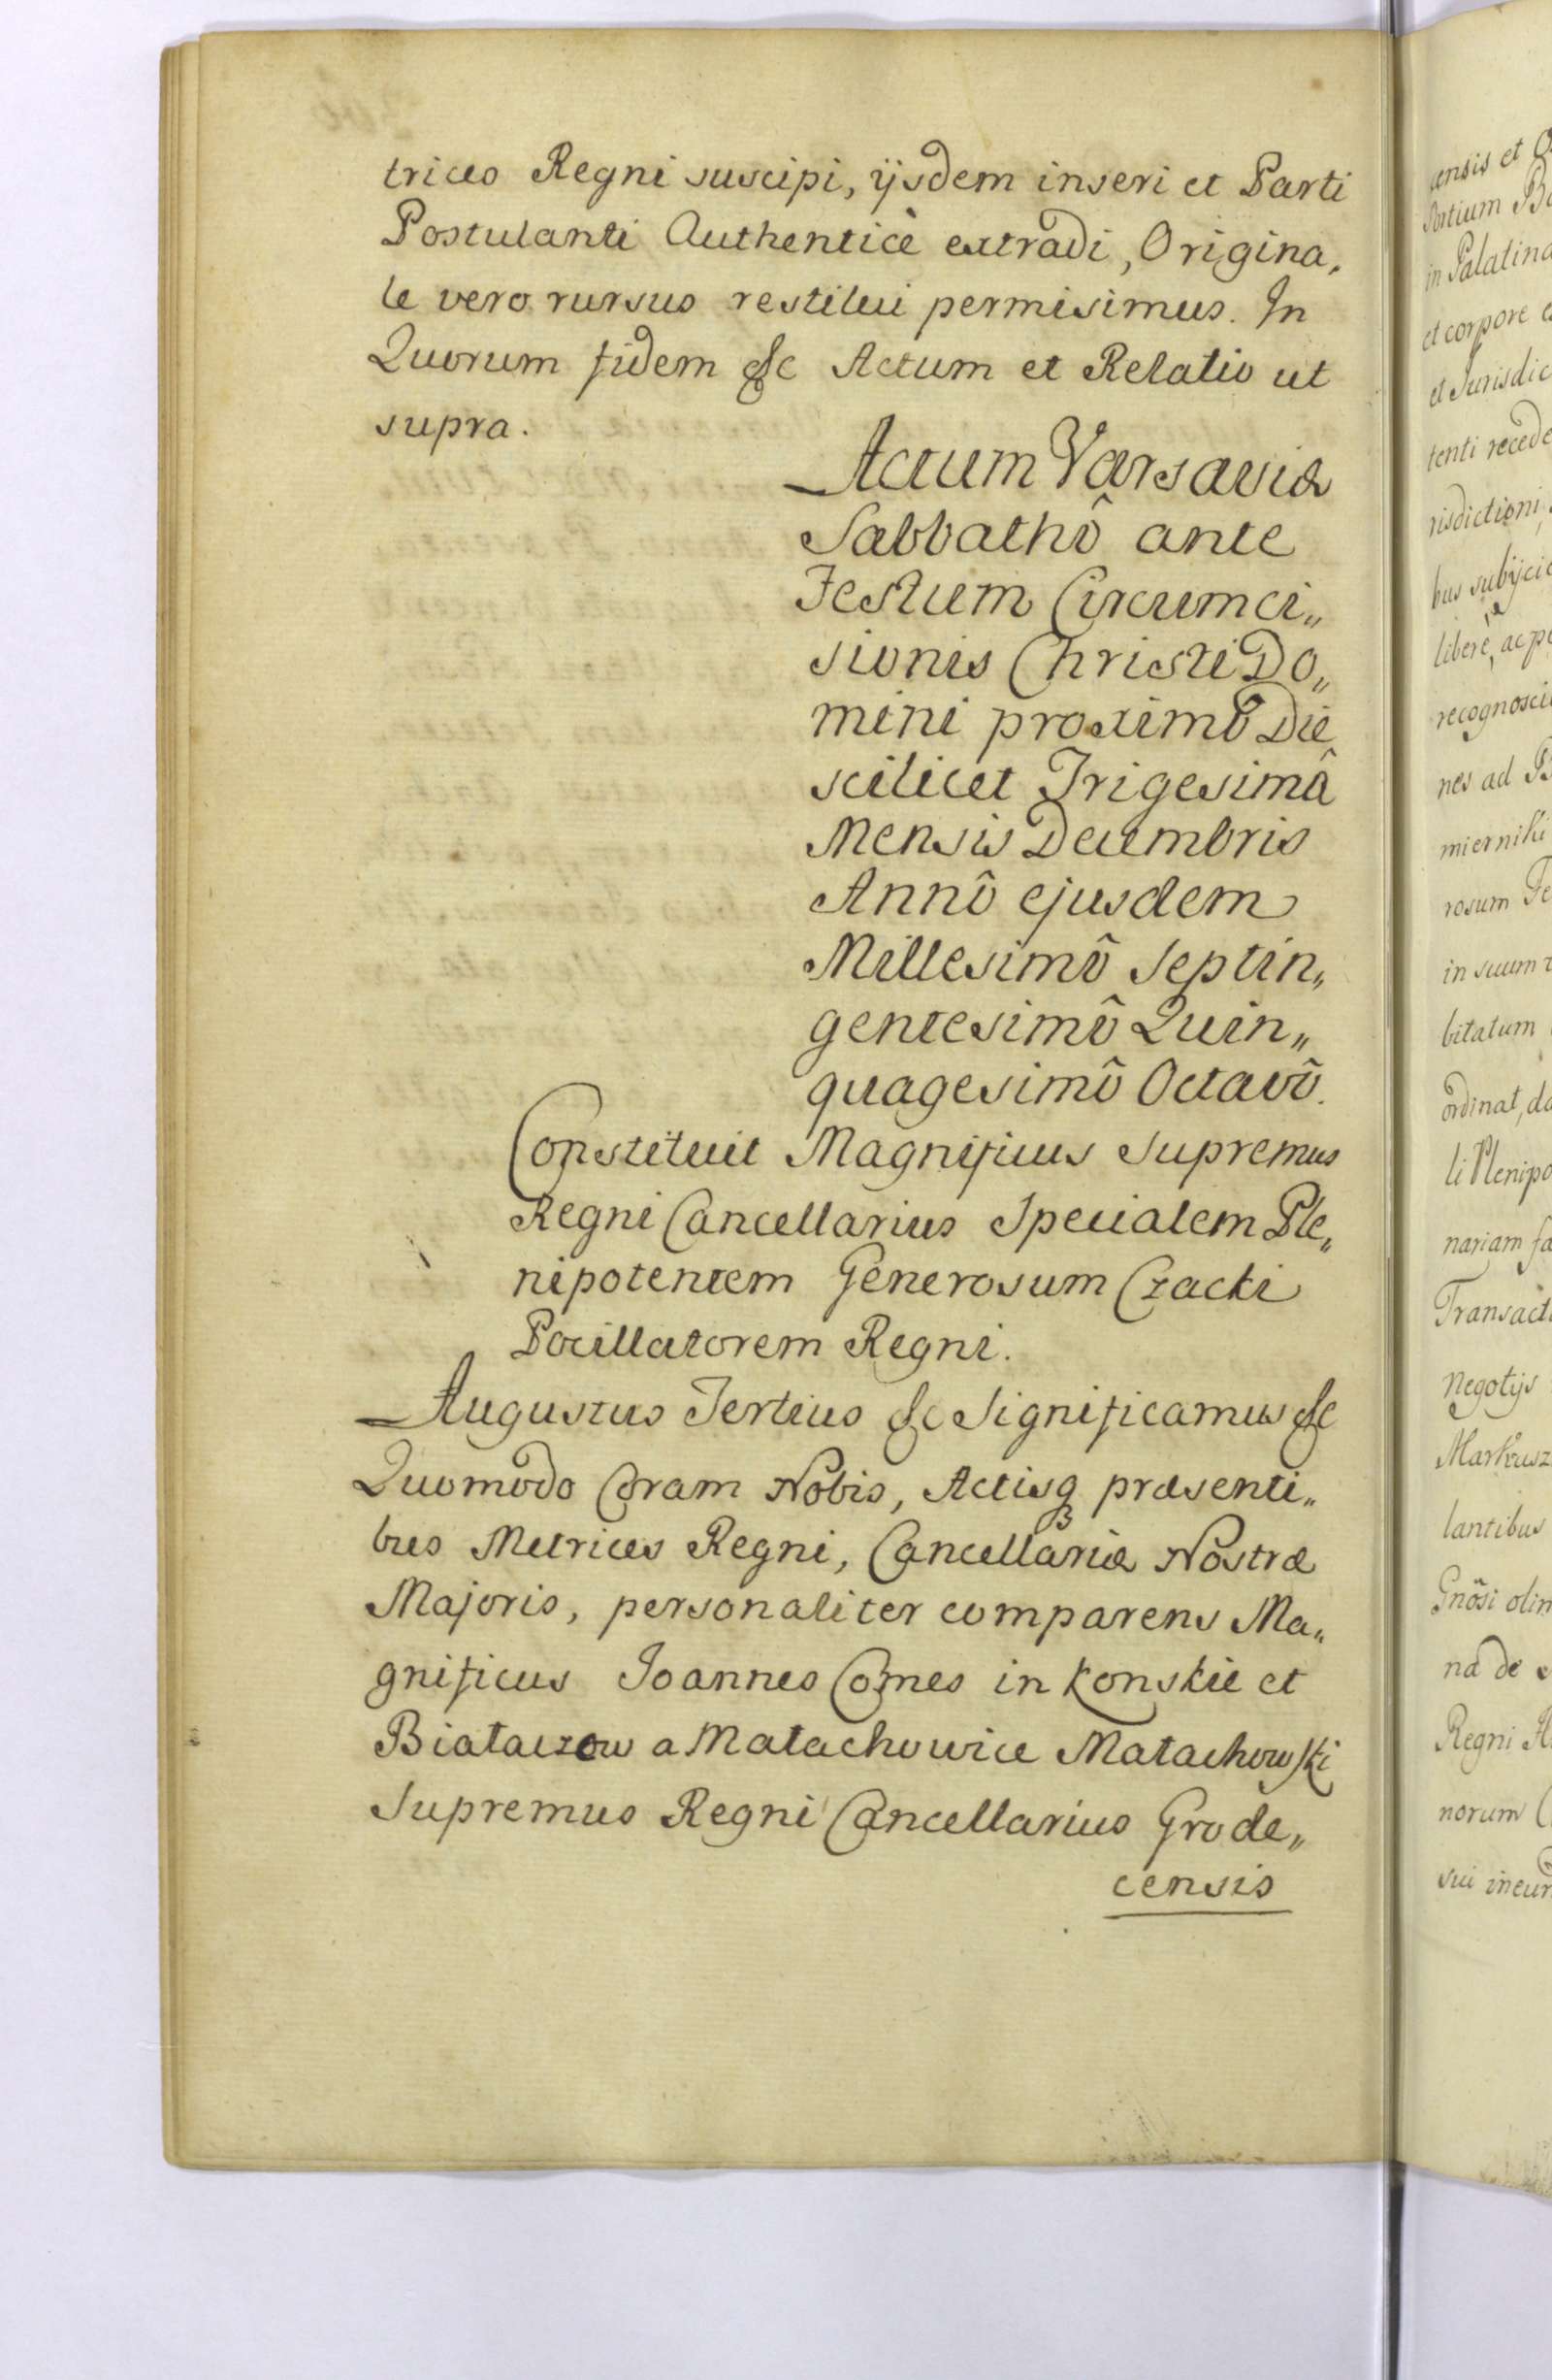 trices Regni suscipi, ijsdem inseri et Parti
Postulanti Authenticè extradi, Origina„
le vero rursus restitui permisimus. In
Quorum fidem &c Actum et Relatio ut
supra.
Actum Varsaviæ
Sabbathô ante
Festum Circumci„
sionis Christi Do„
mini proximô Die
scilicet Trigesimâ
Mensis Decembris
Annô ejusdem
Millesimô Septin„
gentesimô Quin„
quagesimô Octavô.
Constituit Magnificus Supremus
Regni Cancellarius Specialem Ple„
nipotentem Generosum Czacki
Pocillatorem Regni.
Augustus Tertius &c Significamus &c
Quomodo Coram Nobis, Actisq præsenti„
bus Metrices Regni, Cancellariæ Nostræ
Majoris, personaliter comparens Ma„
gnificus Joannes Comes in Konskie et
Białaczow a Małachowice Małachowski
Supremus Regni Cancellarius Grode„
censis
censis et
in Palatina
et corpore
et Jurisdic
tenti recede
risdictioni,
bus subijci
libere, ac pe
recognosci
nes ad
mierniki
rosum
in suum
bitatum
ordinat, da
li Plenipo
nariam fa
Transact
Negotijs
Markusz
lantibus
Gnosi olim
na de
Regni
norum
sui ineun